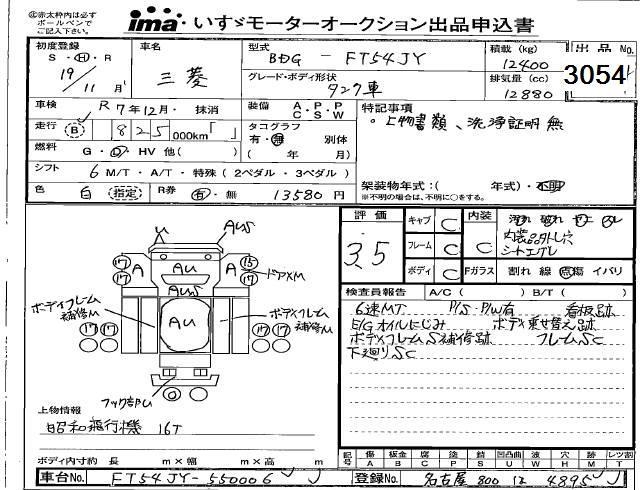 ㊟赤太枠内は必ず
ボールペンで
ご記入下さい。
ima いすゞモーターオークション出品申込書
初度登録
S・H・R
19/11月
車名
三菱
型式
BDG-FT54JY
グレード・ボディ形状
タンク車
積載 (kg)
12400
排気量 (cc)
12880
出品No.
3054
車検 R 7年12月・抹消
装備 A・P・P
C・S・W
特記事項
。上物書類、洗浄証明無
走行 B 825000km「 」
タコグラフ
有・無 別体
( 年 月)
燃料 G・D・HV 他( )
シフト 6 M/T・A/T・特殊 (2ペダル・3ペダル)
架装物年式:( 年式)・不明
※不明の場合は、不明に○をする。
色 白 (指定) R券 有・無 13580円
評価
3.5
キャブ C
フレーム C
ボディ C
内装 C
汚れ 破れ コゲ ヌレ
内装品外し穴
シートエグレ
Fガラス 割れ 線 点傷 イバリ
検査員報告 A/C ( ) B/T ( )
6速MT P/S P/W有 看板跡
E/Gオイルにじみ ボデー乗せ替え跡
ボディフレームS補修跡 フレームSC
下廻りSC
U AuS
17 17 A AU A 15 17 ドアXM
Au
ボディフレーム
補修M
17 17
ボディフレーム
補修M
17 17
フック部U
上物情報
昭和飛行機 16T
ボディ内寸約 長 m×幅 m×高 m
記号 傷 板金 腐 塗 錆 凹凸曲 波 穴 跡 レツ割
A B C P S U W H M T
車台No. FT54JY-550006
登録No. 名古屋 800 は 4895